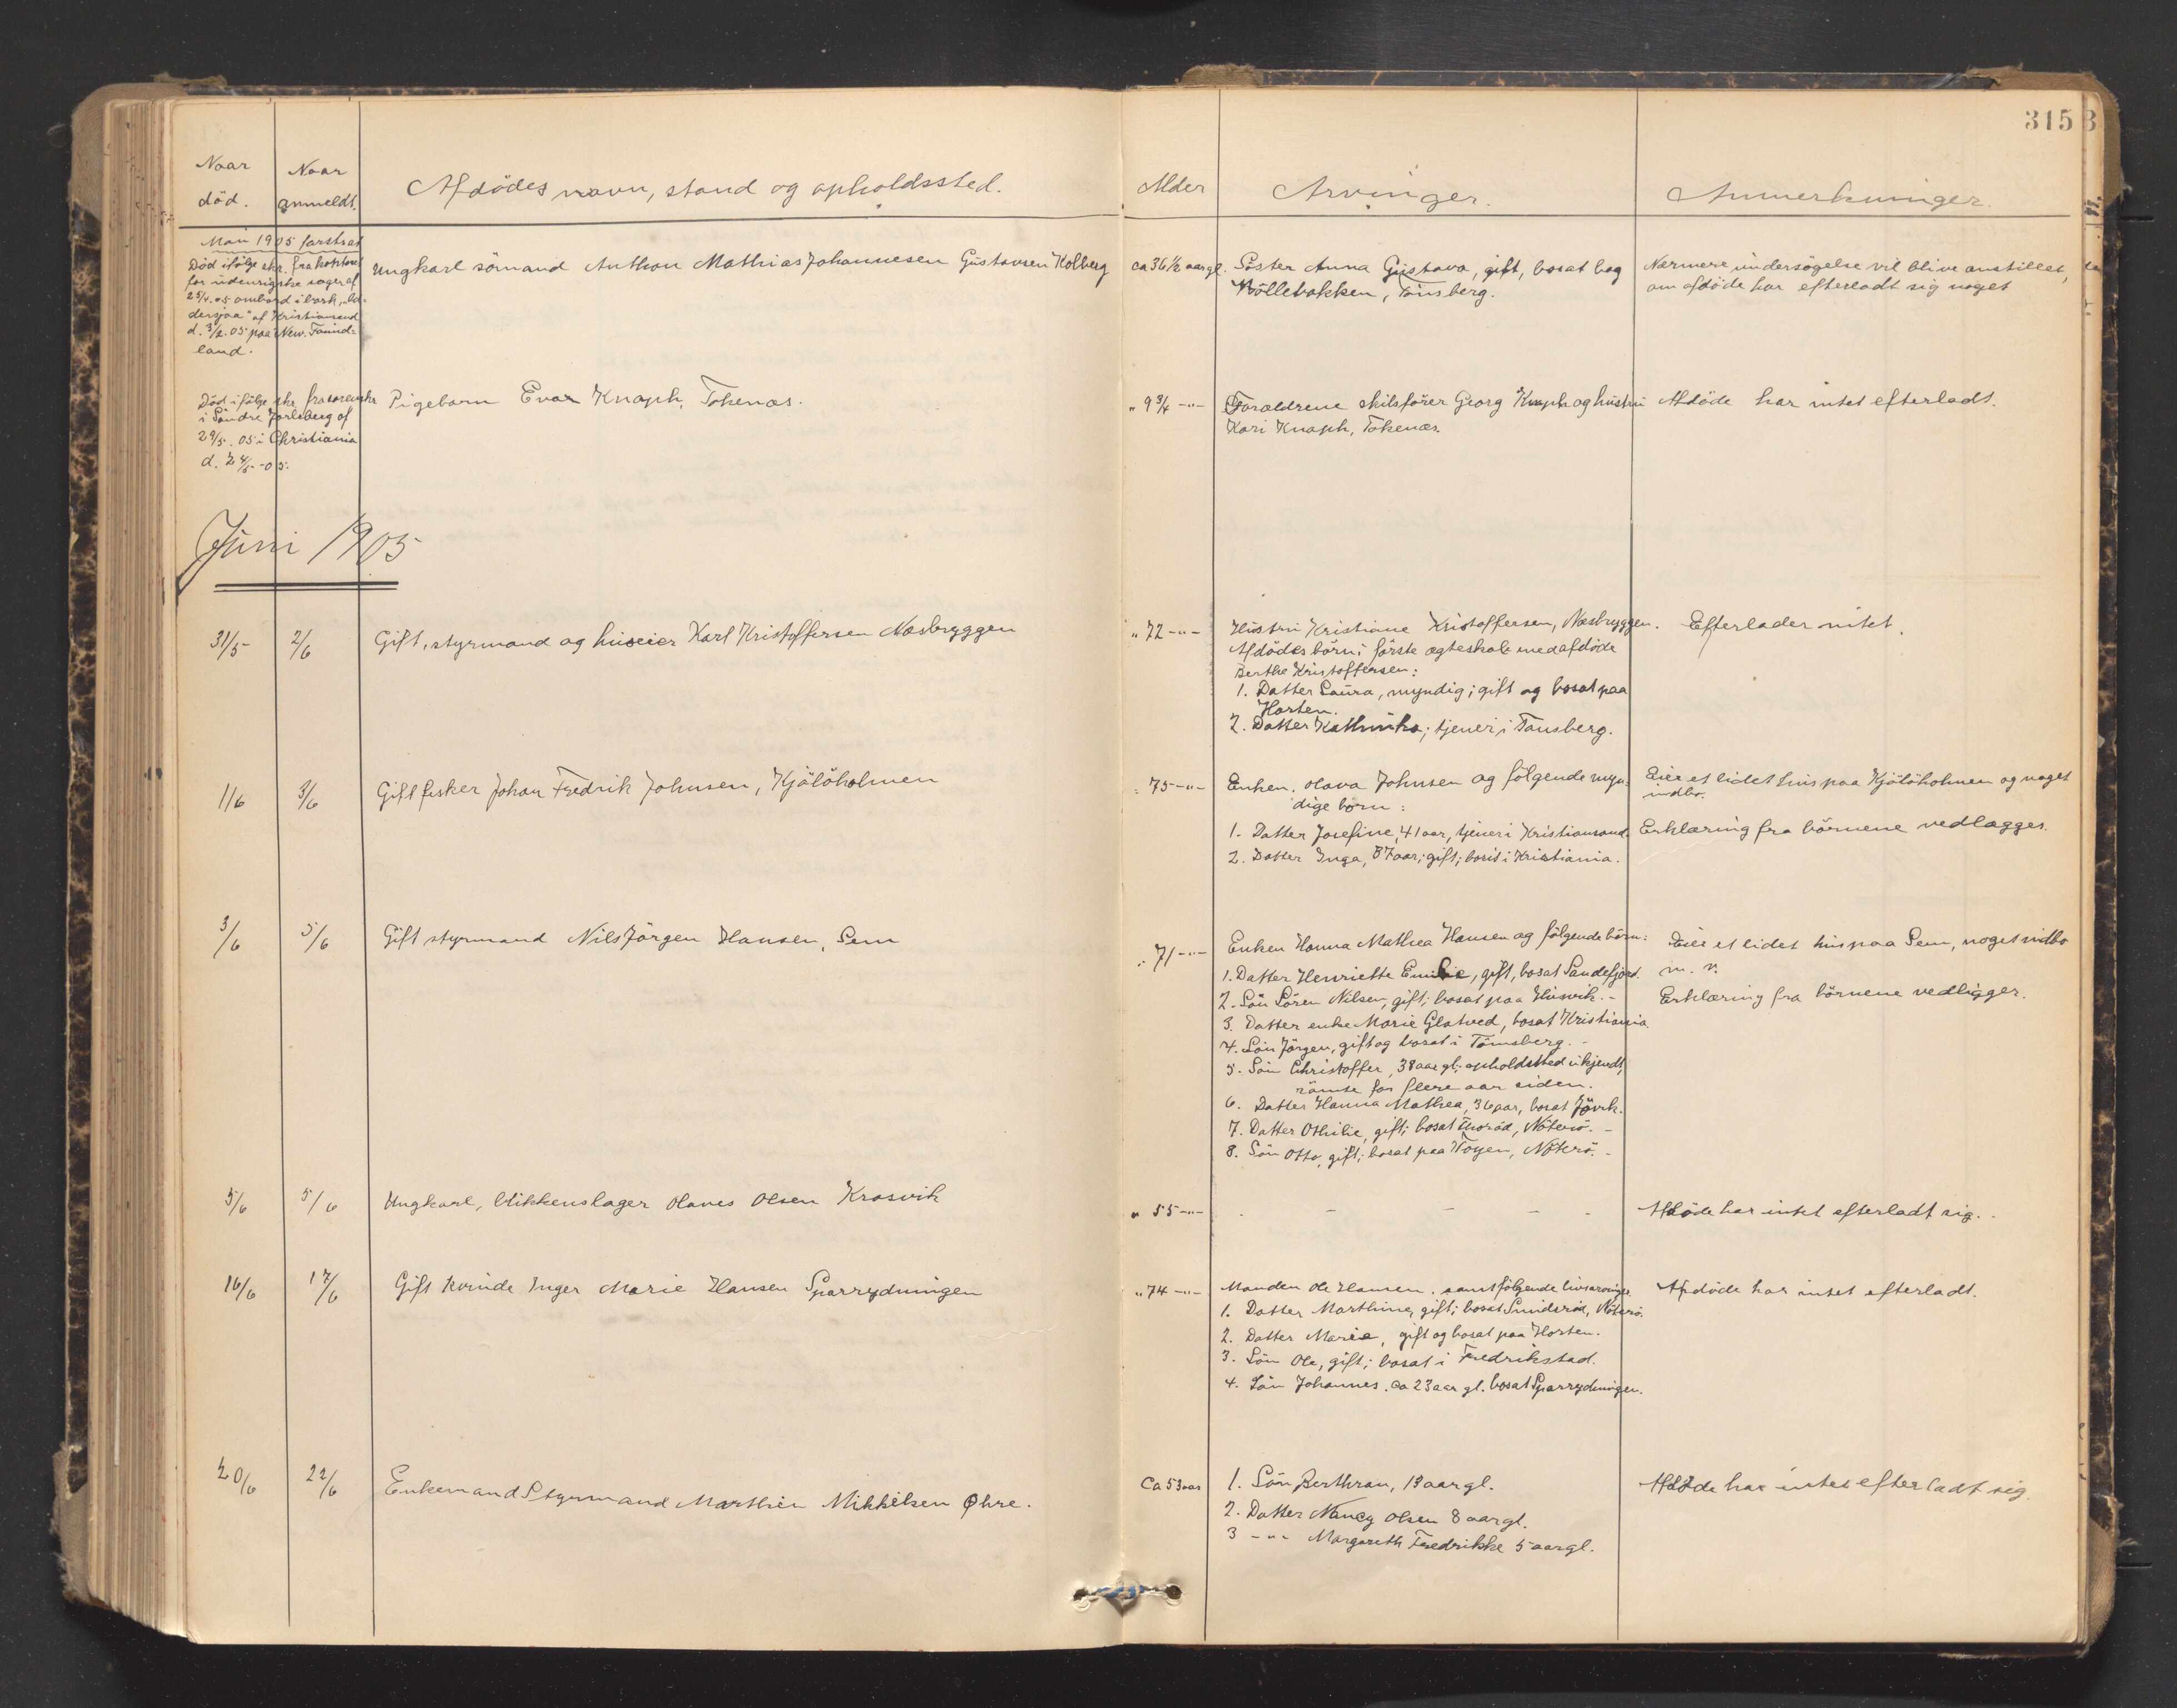 315
Naar død.
Naar anmeldt.
Afdødes navn, stand og opholdssted.
Alder
Arvinger.
Anmerkninger.
Mai 1905 forstsat
Død ifølge skr. fra kontoret
for udenrigske sager af
25/4.05 ombord i bark
af Kristiansand
d. 3/2.05 paa New-Found=
land.
Ungkarl sömand Anthon Mathias Johannesen Gustavsen Holberg
ca 36 1/2 aar gl.
Søster Anna Gustava, gift, bosat bag
Möllebakken, Tönsberg.
Nærmere undersögelse vil blive anstillet,
om afdöde har efterladt sig noget
Død ifölge skr. fra sorenskr
i Söndre Jarlsberg af
29/5.05 i Christiania
d. 24/5-05.
Pigebarn Eva Knaph, Tokenæs.
" 9 3/4 -"-
Foraldrene skibsförer Georg Knaph og hustru
Kari Knaph, Tokenæs.
Afdöde har intet efterladt.
Juni 1905
31/5
2/6
Gift, styrmand og huseier Karl Kristoffersen Næsbryggen
" 72 -"-
Hustru Kristiane Kristoffersen, Næsbryggen.
Afdödes börn i förste ægteskab med afdöde
Berthe Kristoffersen:
1. Datter Laura, myndig; gift og bosat paa
Horten.
2. Datter Kathinka; tjener i Tønsberg.
Efterlader intet.
1/6
3/6
Gift fisker Johan Fredrik Johnsen, Kjölöholmen
" 75 -"-
Enken Olava Johnsen og fölgende myn=
dige börn:
1. Datter Josefine, 41 aar, tjener i Kristiansand.
2. Datter Inga, 37 aar; gift; bosit i Kristiania.
Eier et lidet hus paa Kjölöholmen og noget
indbo.
Erklæring fra börnene vedlægges.
3/6
5/6
Gift styrmand Nils Jörgen Hansen, Sem
" 71 -"-
Enken Hanna Mathea Hansen og fölgende börn:
1. Datter Henriette Emilie, gift, bosat Sandefjord.
2. Sön Sören Nilsen, gift; bosat paa Husvik. -
3. Datter enke Marie Glatved, bosat Kristiania.
4. Sön Jörgen, gift og bosat i Tönsberg. -
5. Sön Christoffer, 38 aar gl; opholdsted ukjendt,
römte for flere aar siden.
6. Datter Hanna Mathea, 36 aar, bosat
7. Datter Othilie, gift; bosat Thoröd, Nöterö. -
8. Sön Otto, gift; bosat paa Föyen, Nöterö. -
Eier et lidet hus paa Sem, noget indbo
m. v.
Erklæring fra börnene vedligger.
5/6
5/6
Ungkarl, blikkenslager Olaves Olsen Krasvik
" 55 -"-
- - - - -
Afdöde har intet efterladt sig.
16/6
17/6
Gift kvinde Inger Marie Hansen Sparrydningen
" 74 -"-
Manden Ole Hansen samt fölgende livsarvinger
1. Datter Marthine, gift; bosat Smidsröd, Nöterö.
2. Datter Marie, gift og bosat paa Horten.
3. Sön Ole, gift; bosat i Fredrikstad.
4. Sön Johannes. ca 23 aar gl. bosat Sparrydningen.
Afdöde har intet efterladt.
20/6
22/6
Enkemand Styrmand Marthin Mikkelsen Øhre.
Ca 53 aar
1. Sön Berthran, 13 aar gl.
2. Datter Nancy Olsen 8 aar gl.
3 -"- Margareth Fredrikke 5 aar gl.
Afdöde har intet efterladt sig.